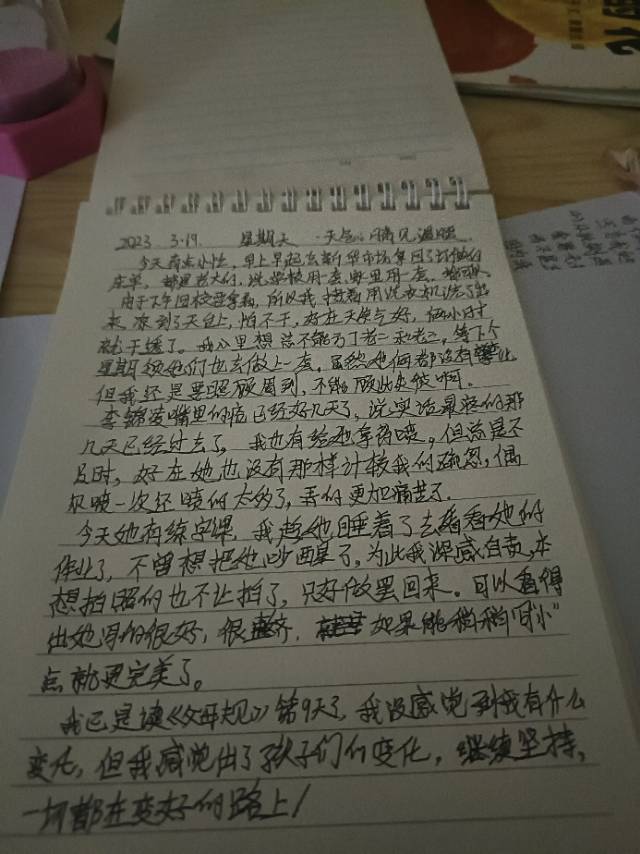 2023 3.19. 星期天 天气:晴见温暖
今天有点小忙,早上早起去新华市场拿回了切做的
床单,都是老大的,说学校用一套,家里用一套,
由于下午回校要拿着,所以我接着用洗衣机洗了出
来,凉到了天台上,怕不干,好在天气好,俩小时
就干透了。我心里想总不能亏了老二和老三,等下个
星期领她们也去做上一套,虽然她俩都没有
但我还是要照顾周到,不能顾此失彼啊。
李锦 嘴里的疮已经好几天了,说实话最疼的那
几天已经过去了,我也有给她拿药喷,但总是不
及时,好在她也没有那样计较我的疏忽,偶
尔喷一次还喷的太多了,弄的更加痛苦了.
今天她有练字课,我趁她睡着了去看看她的
作业了,不曾想把她吵醒了,为此我深感自责,本
想拍照的也不让拍了,只好做罢回来。可以看得
出她写的很好,很整齐,如果能稍稍"小"
点就更完美了。
我已是读《父母规》第9天了,我没感觉到我有什么
变化,但我感觉出了孩子们的变化,继续坚持,
一切都在变好的路上!